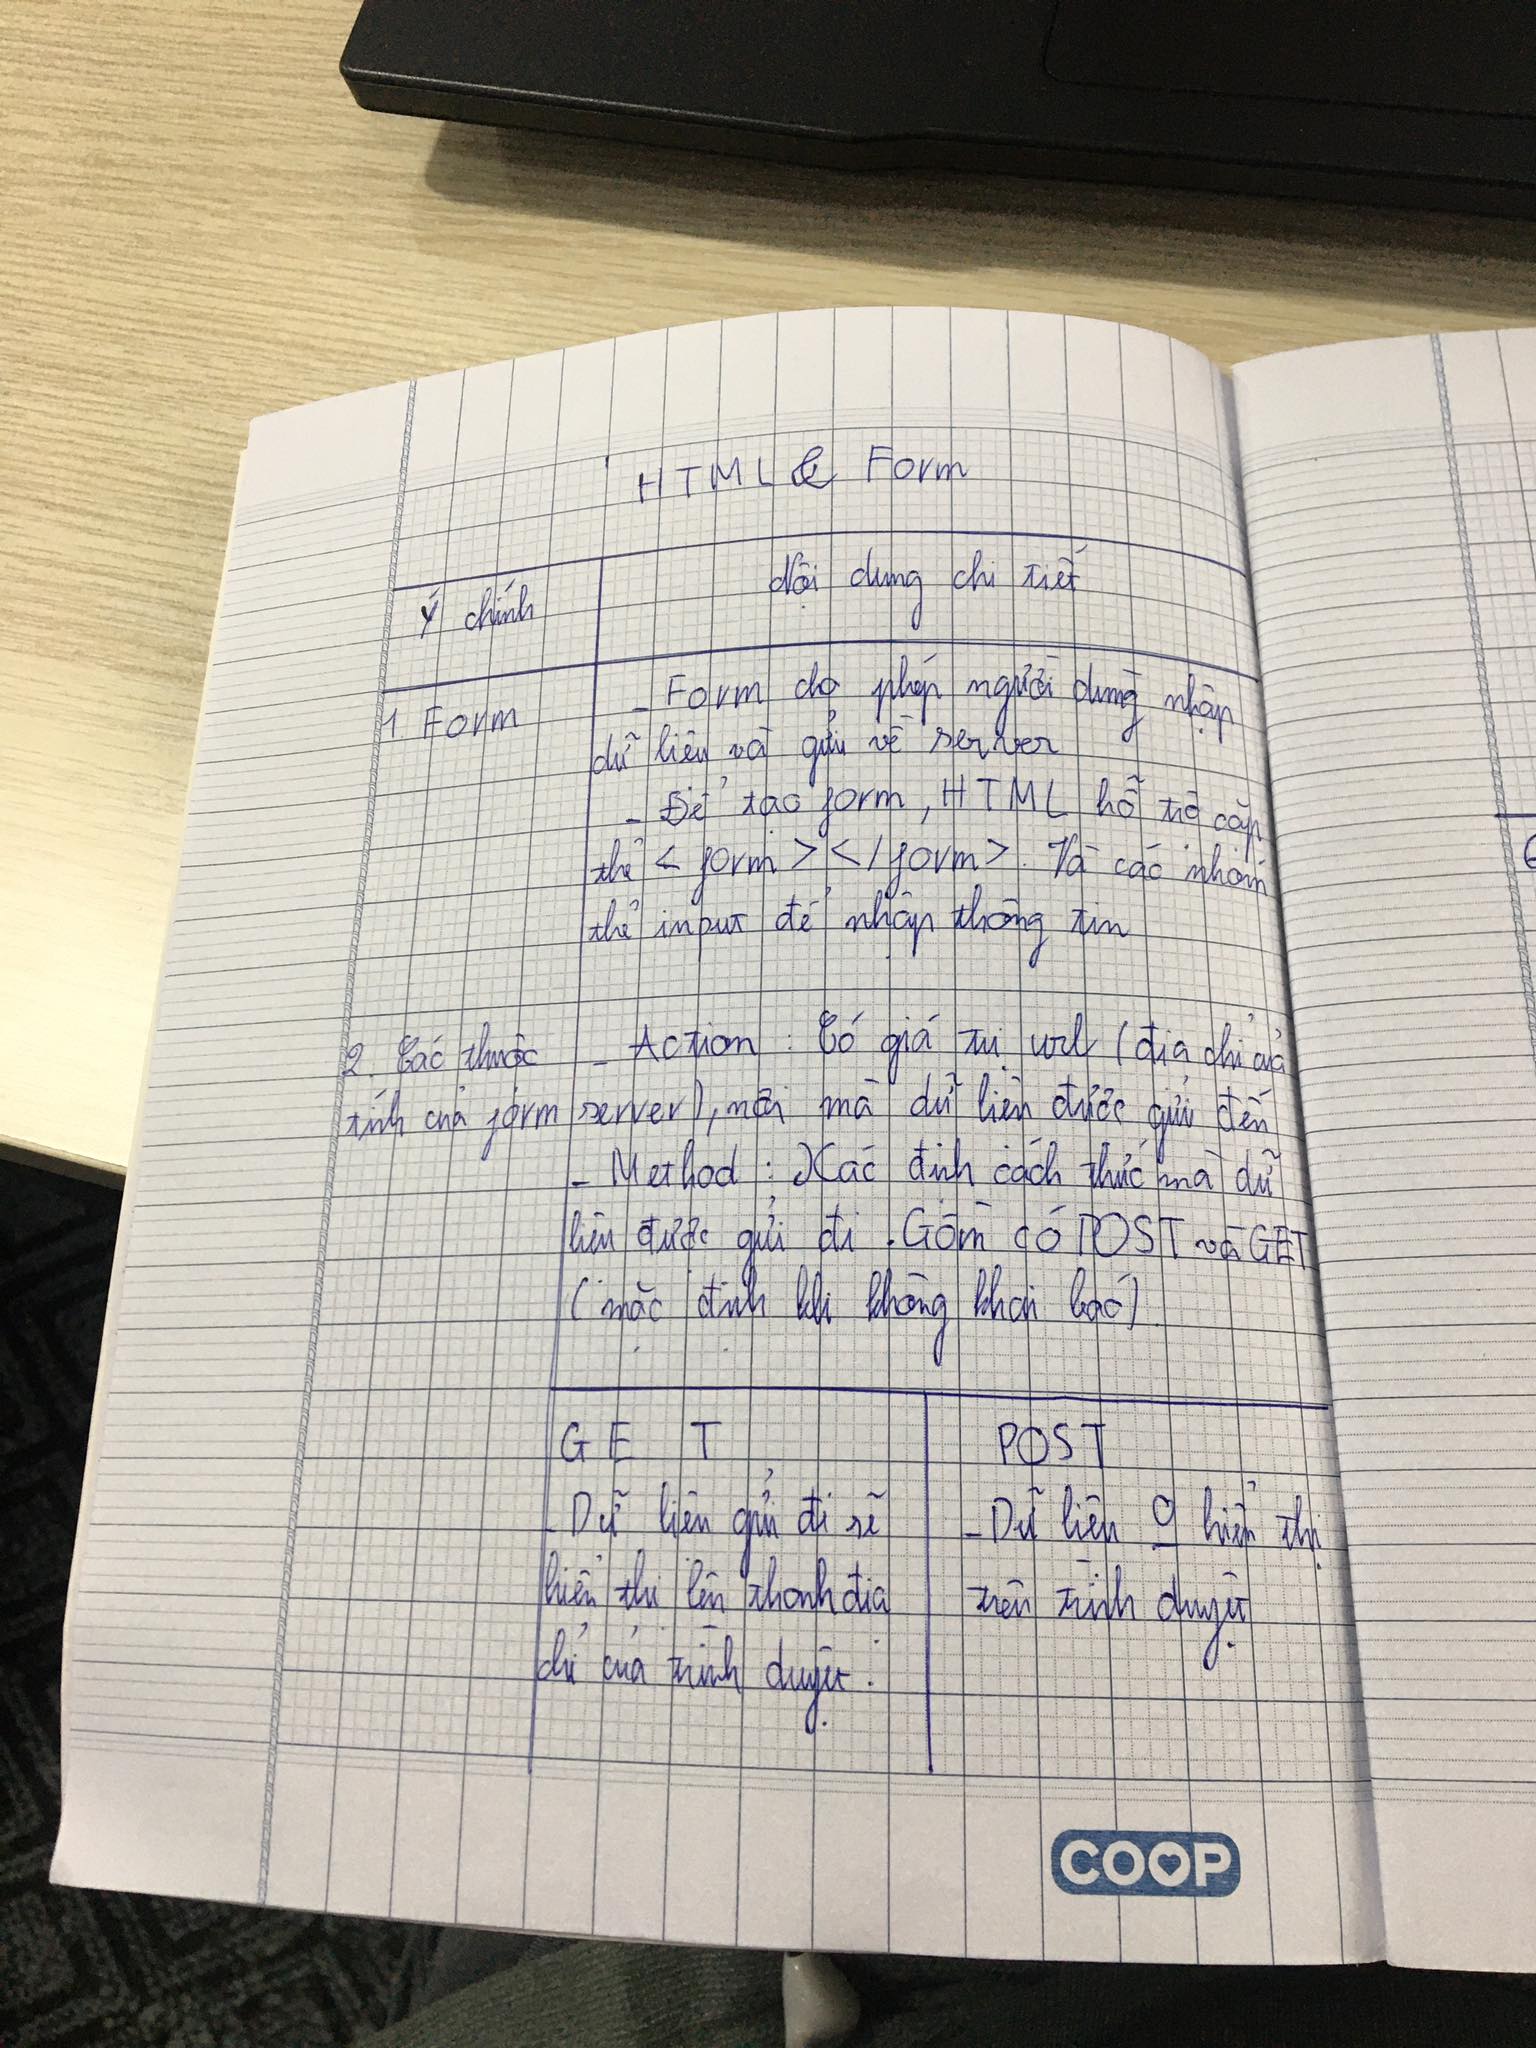 HTML & Form
Ý chính
Nội dung chi tiết
1 Form
- Form cho phép người dùng nhập
dữ liệu và gửi về server
- Để tạo form, HTML hỗ trợ cặp
thẻ <form></form>. Và các nhóm
thẻ input để nhập thông tin
2. Các thuộc
tính của form
- Action : Có giá trị url (địa chỉ của
server), nơi mà dữ liệu được gửi đến
- Method : Xác định cách thức mà dữ
liệu được gửi đi. Gồm có POST và GET
(mặc định khi không khai báo)
GET
- Dữ liệu gửi đi sẽ
hiển thị lên thanh địa
chỉ của trình duyệt.
POST
- Dữ liệu hiển thị
trên trình duyệt
COOP